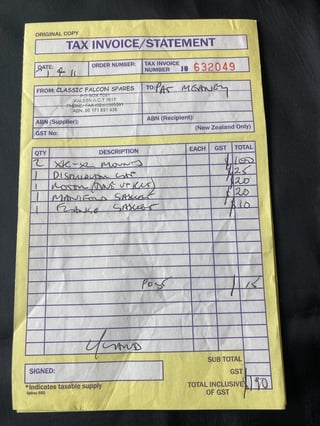 ORIGINAL COPY
TAX INVOICE/STATEMENT
DATE: 1 4 11 ORDER NUMBER: TAX INVOICE NUMBER 632049
FROM: CLASSIC FALCON SPARES TO: PAT
KALEEN A.C.T 2617
ABN (Supplier): ABN (Recipient):
GST No: (New Zealand Only)
QTY DESCRIPTION EACH GST TOTAL
2 MOUNTS 100
1 DISTRIBUTOR CAP 25
1 ROTOR 20
1 MANIFOLD GASKET 20
1 FLANGE GASKET $10
POST 15
SUB TOTAL
SIGNED: GST
*Indicates taxable supply TOTAL INCLUSIVE OF GST $190